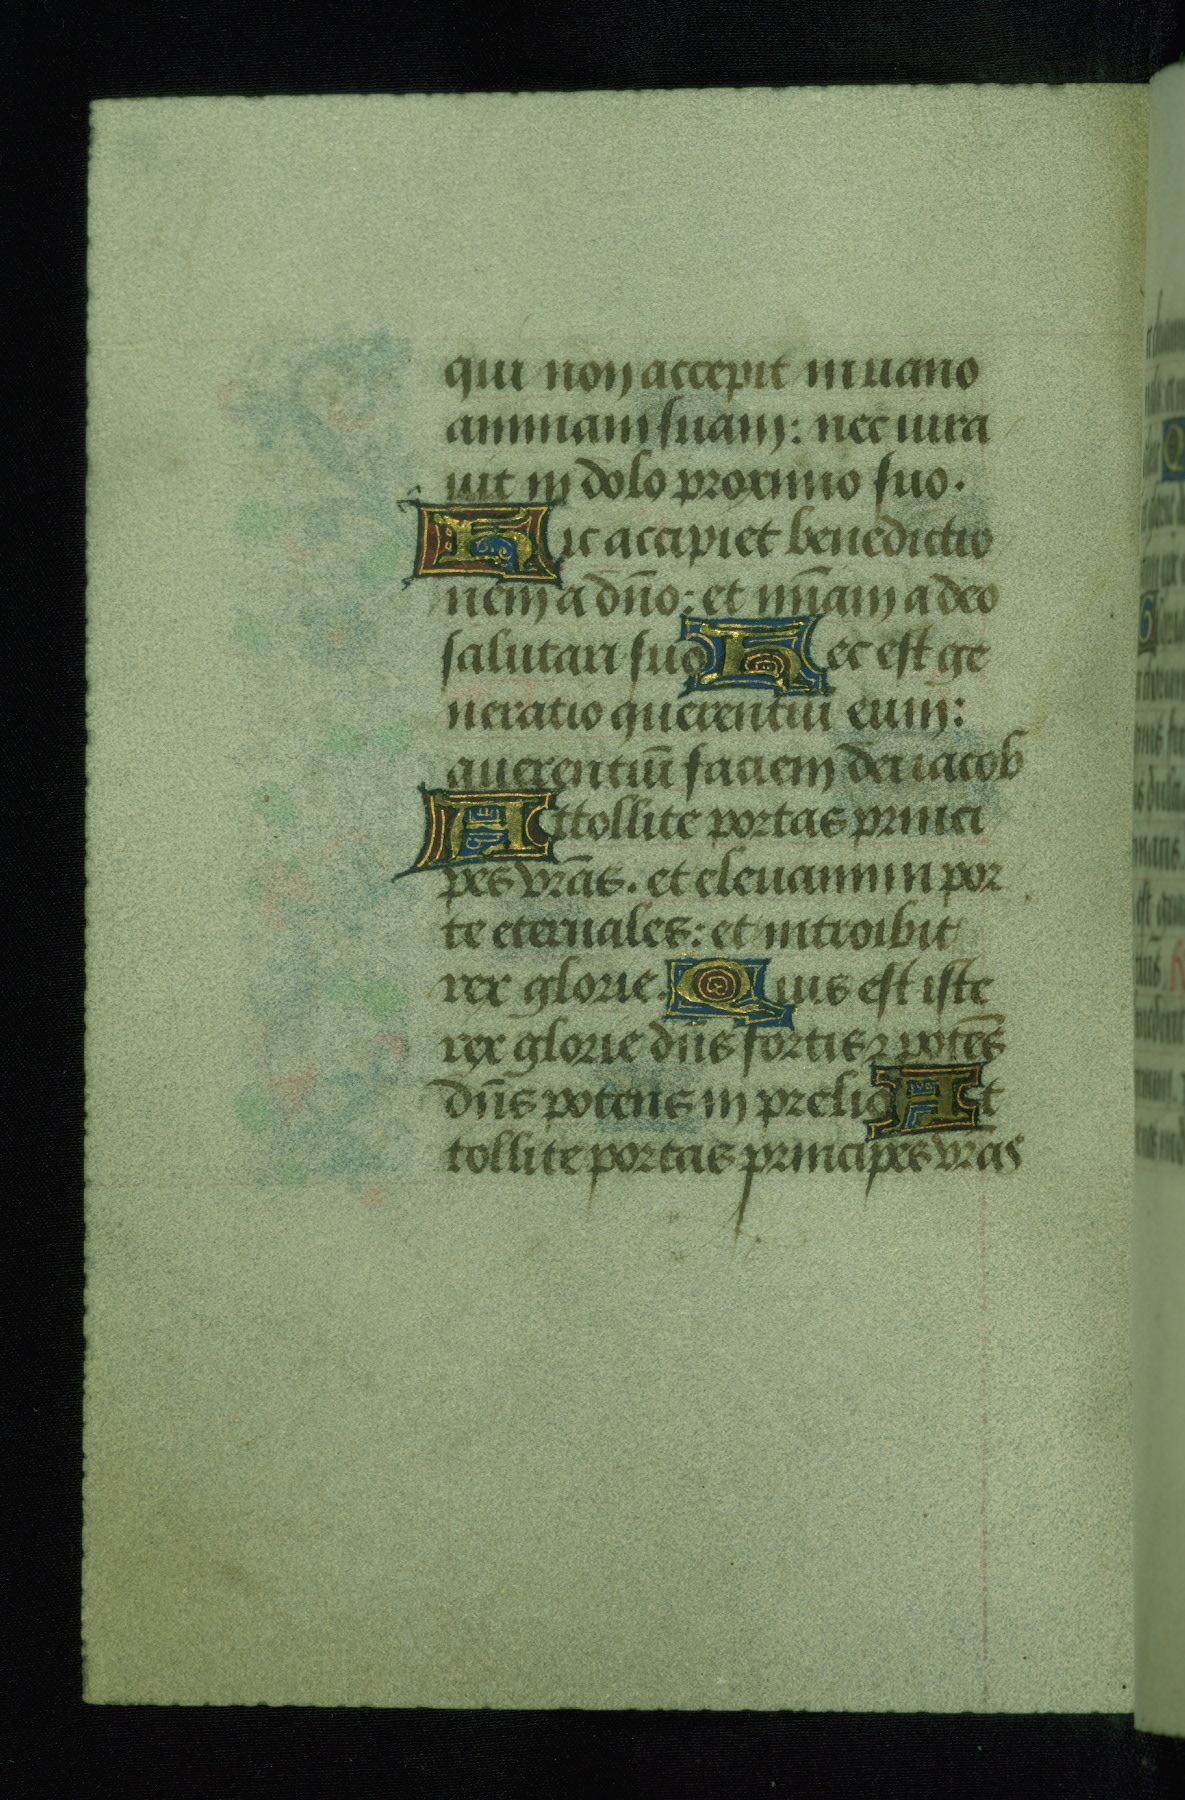 qui non accepit in uano
animam suam: nec iura
uit in dolo proximo suo.
Hic accipiet benedictio
nem a dn̄o: et mīam a deo
salutari suo Hec est ge
neratio querentiū eum:
querentiū faciem dei iacob
Attollite portas princi
pes vr̄as. et eleuamini por
te eternales: et introibit
rex glorie. Quis est iste
rex glorie dn̄s fortis ⁊ potēs
dn̄s potens in prelio At
tollite portas principes vr̄as